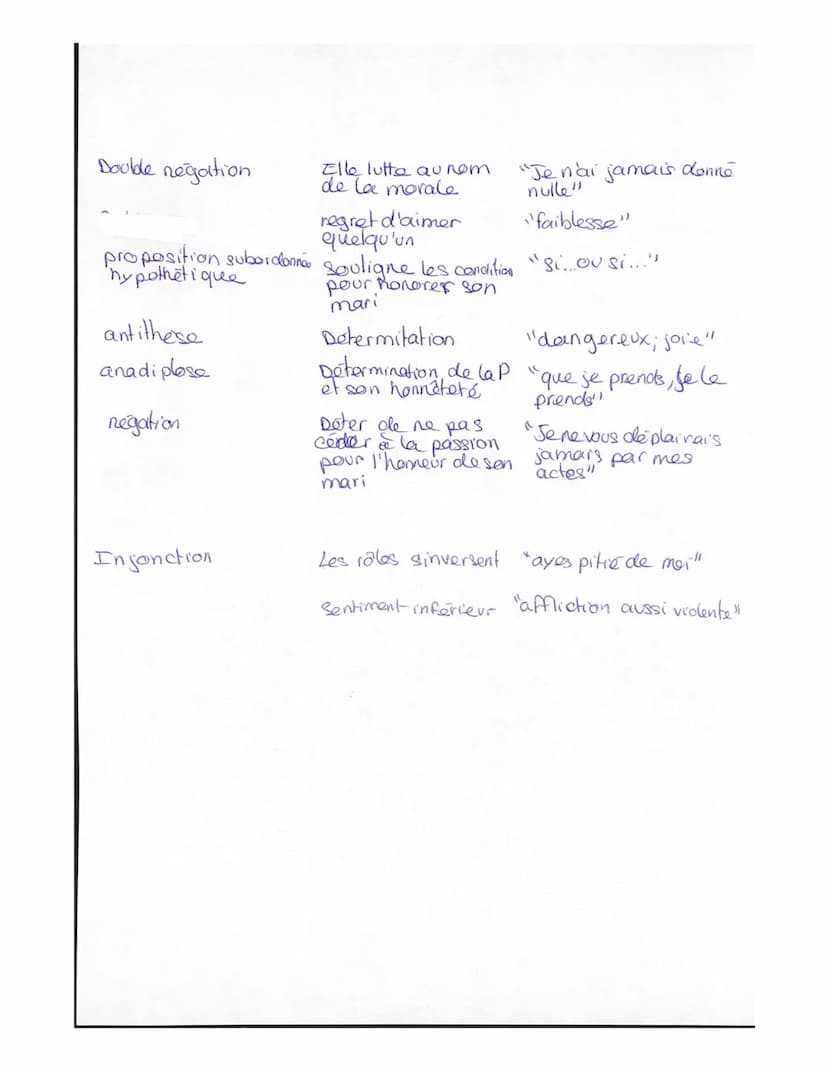 Double négation Elle lutte au nom "Je n'ai jamais donné
de la morale nulle"
regret d'aimer "faiblesse"
quelqu'un
proposition subordonnée souligne les condition "si...ou si..."
hypothétique pour honorer son
mari
antithèse Determitation "dangereux; joie"
anadiplose Détermination de la P "que je prends, je le
et son honnêteté prends"
négation Doter de ne pas "Je ne vous déplairais
céder à la passion jamais par mes
pour l'honeur de son actes"
mari
Injonction Les rôles sinversent "ayes pitié de moi"
sentiment inférieur "affliction aussi violente"